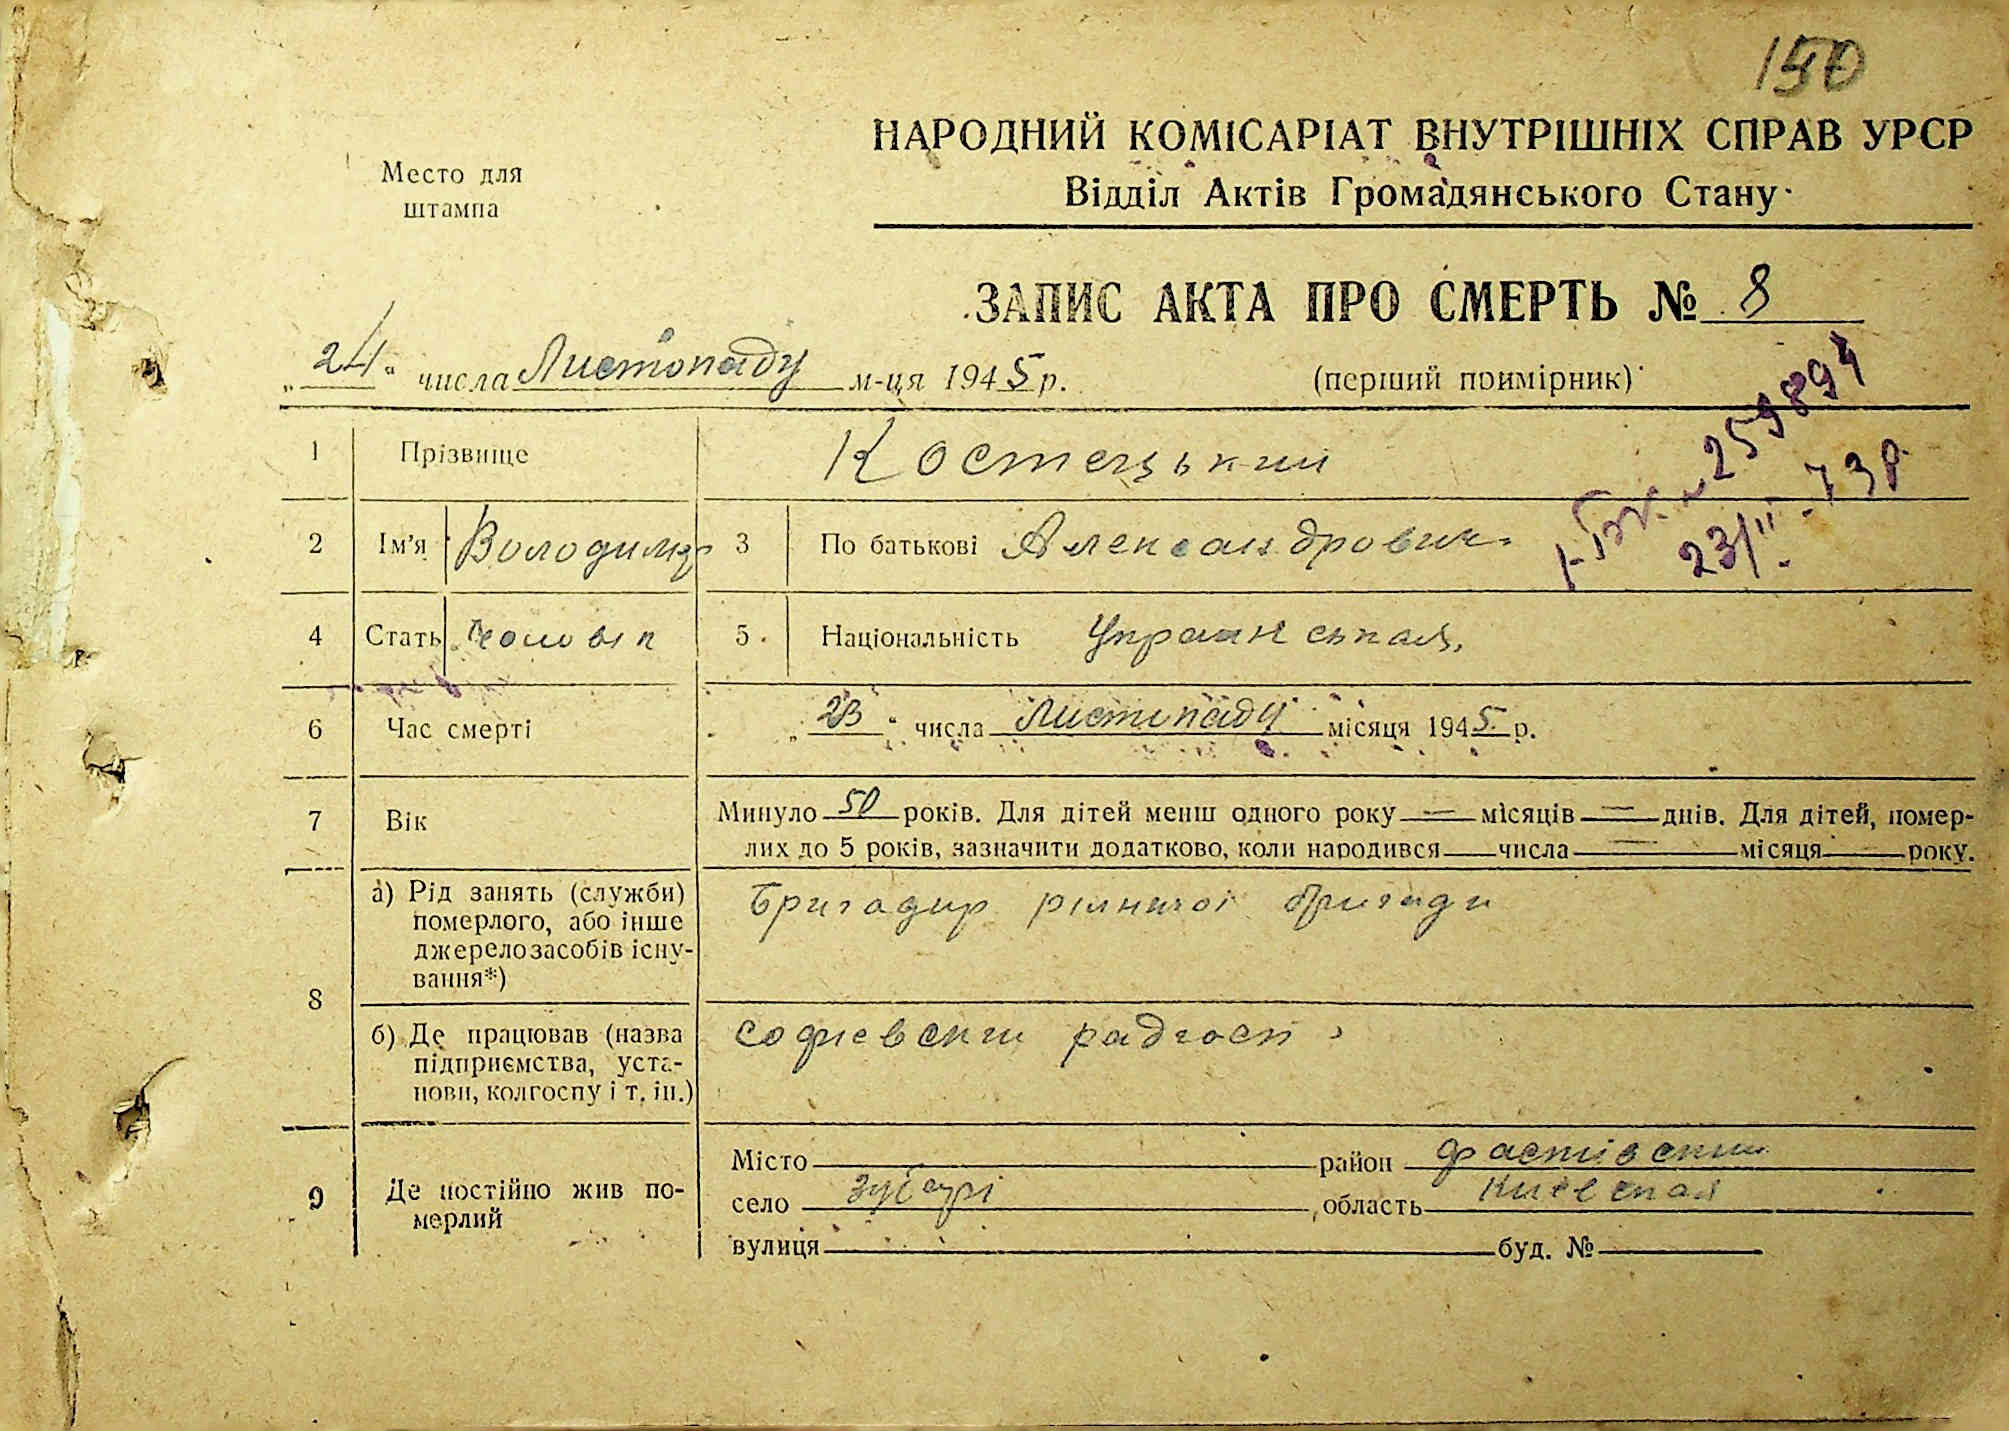 150
НАРОДНИЙ КОМІСАРІАТ ВНУТРІШНІХ СПРАВ УРСР
Відділ Актів Громадянського Стану
Место для
штампа
ЗАПИС АКТА ПРО СМЕРТЬ № 8
„24“ числа Листопаду м-ця 1945 р.
(перший примірник)
№ 259894
23/II-73р
1 Прізвище Костецький
2 Ім'я Володимир 3 По батькові Александрович
4 Стать чоловік 5. Національність Украинськая
6 Час смерті „23“ числа Листопаду місяця 1945 р.
7 Вік Минуло 50 років. Для дітей менш одного року — місяців — днів. Для дітей, помер-
лих до 5 років, зазначити додатково, коли народився числа — місяця року.
8 а) Рід занять (служби)
померлого, або інше
джерело засобів існу-
вання*)
Бригадир рільничої бригади
б) Де працював (назва
підприємства, уста-
нови, колгоспу і т. ін.)
Софиевский радгосп
9 Де постійно жив по-
мерлий
Місто район Фастівский
село область Киевская
вулиця буд. №